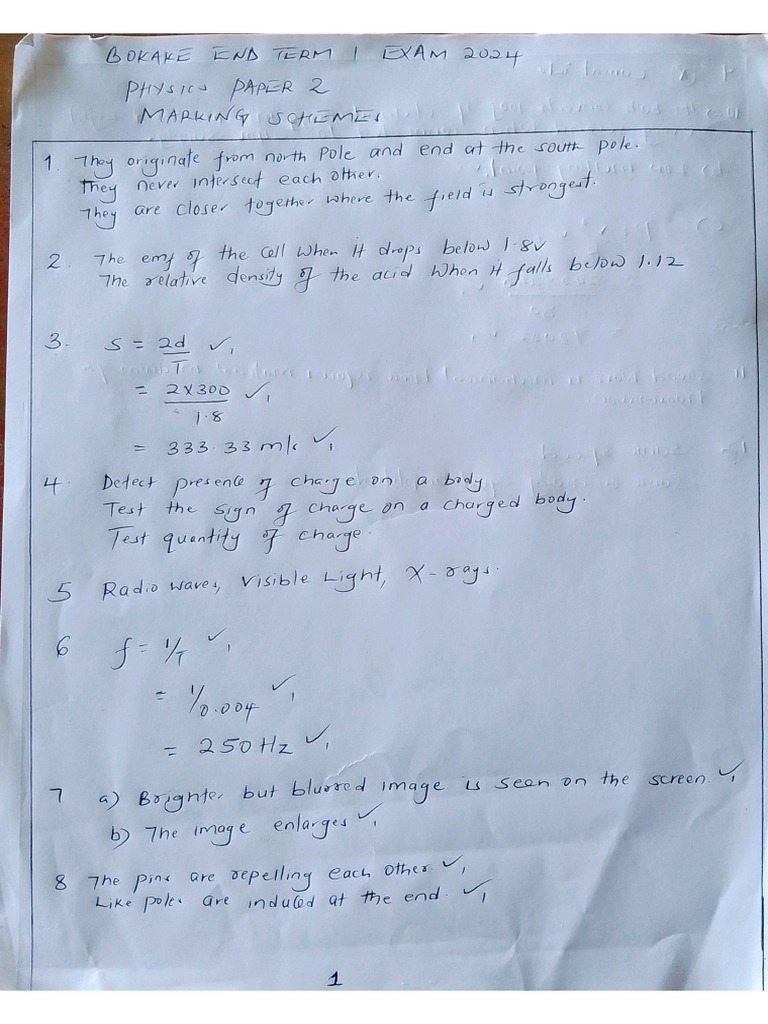 BOKAKE END TERM 1 EXAM 2024
PHYSICS PAPER 2
MARKING SCHEMES
1. They originate from north Pole and end at the south pole.
They never intersect each other.
They are closer together where the field is strongest.
2. The emf of the cell when it drops below 1.8V
The relative density of the acid when it falls below 1.12
3. S = 2d/T ✓1
= 2×300/1.8 ✓1
= 333.33 m/s ✓1
4. Detect presence of charge on a body
Test the sign of charge on a charged body.
Test quantity of charge.
5 Radio waves, Visible Light, X-rays.
6 f = 1/T ✓1
= 1/0.004 ✓1
= 250Hz ✓1
7 a) Brighter but blurred image is seen on the screen. ✓1
b) The image enlarges ✓1
8 The pins are repelling each other. ✓1
Like poles are induced at the end. ✓1
1